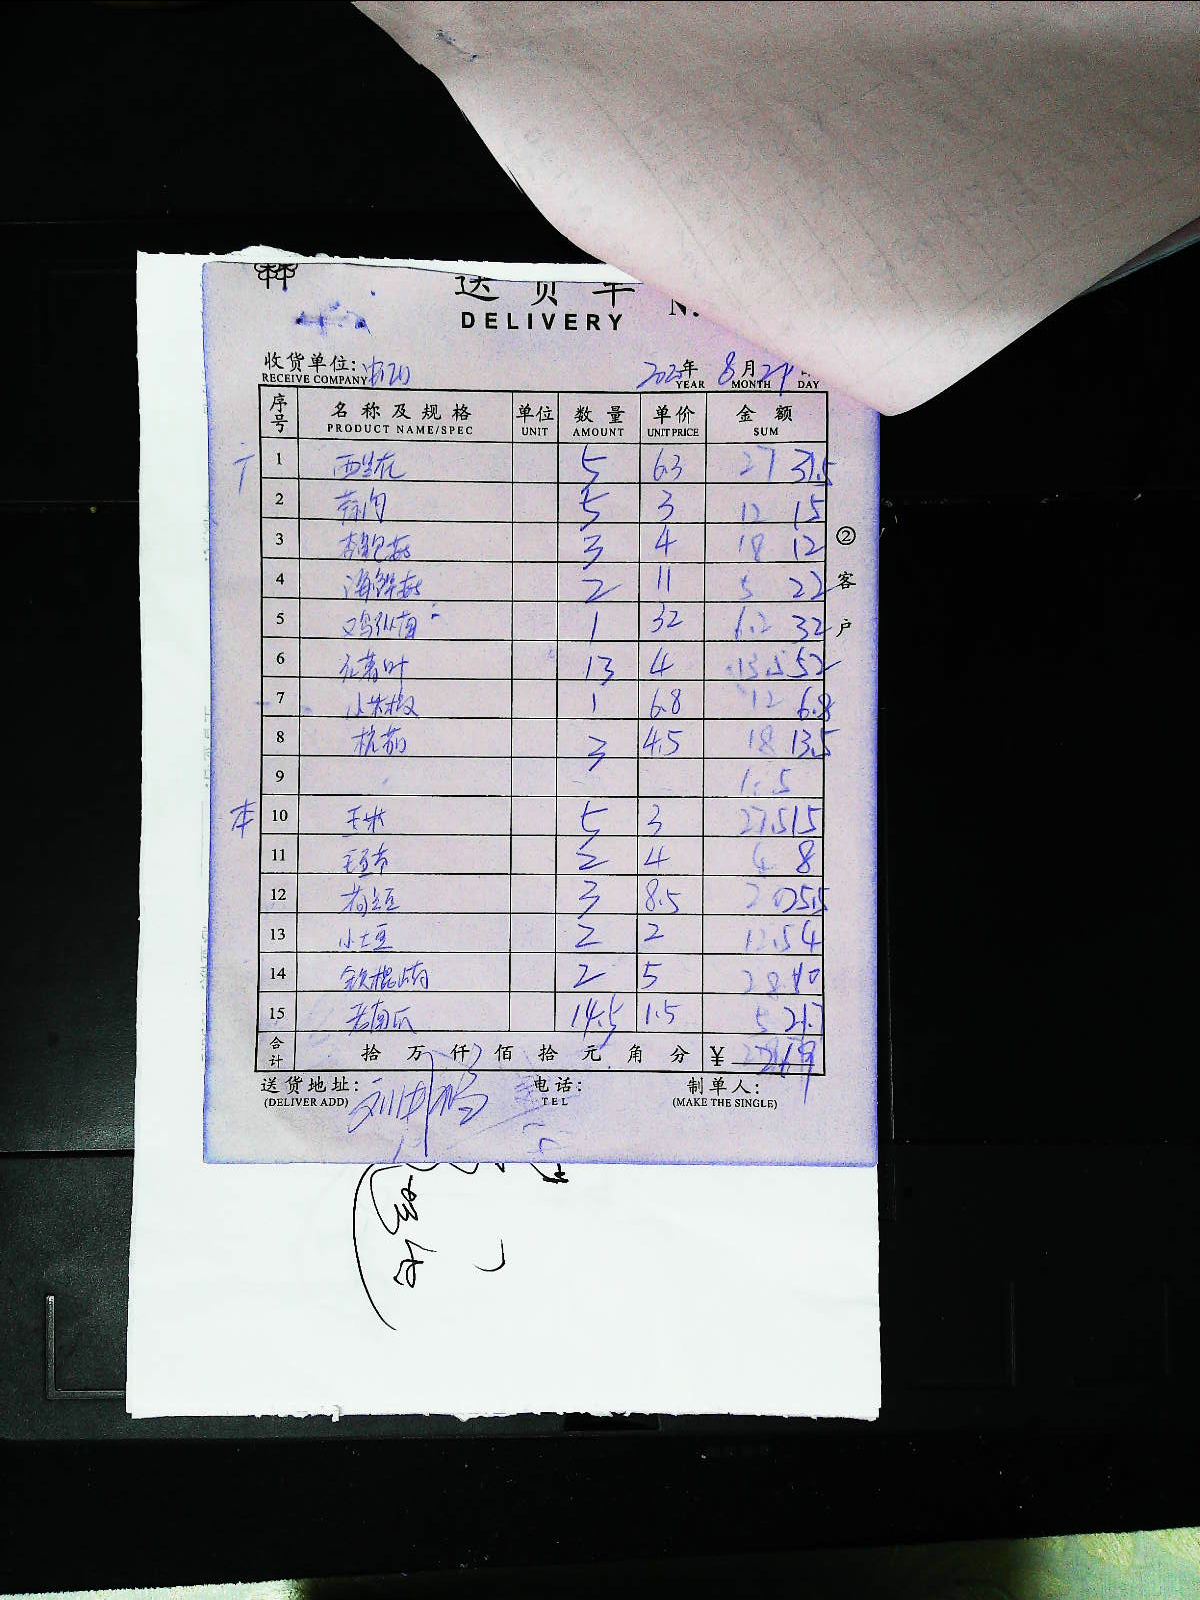 送货单 N.
DELIVERY
收货单位:
RECEIVE COMPANY
2025年 8月24日
YEAR MONTH DAY
序号 名称及规格 单位 数量 单价 金额
PRODUCT NAME/SPEC UNIT AMOUNT UNIT PRICE SUM
1 西兰花 5 6.3 27 31.5
2 5 3 12 15
3 杏鲍菇 3 4 18 12
4 海鲜菇 2 11 5 22
5 1 32 6.2 32
6 红薯叶 13 4 13.5 52
7 小米椒 1 6.8 12 6.8
8 杭茄 3 4.5 18 13.5
9
本 10 玉米 5 3 27.5 15
11 2 4 8
12 3 8.5 25.5
13 小土豆 2 2 12.5 4
14 铁棍山药 2 5 28 10
15 老南瓜 14.5 1.5 5 21.7
合计 拾 万 仟 佰 拾 元 角 分 ¥ 269
②客户
送货地址: 电话: 制单人:
(DELIVER ADD) TEL (MAKE THE SINGLE)